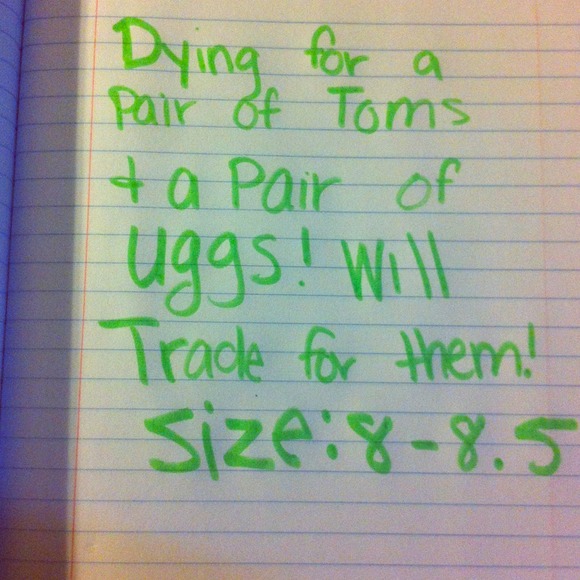 Dying for a
Pair of Toms
+ a Pair of
uggs! Will
Trade for them!
Size: 8-8.5